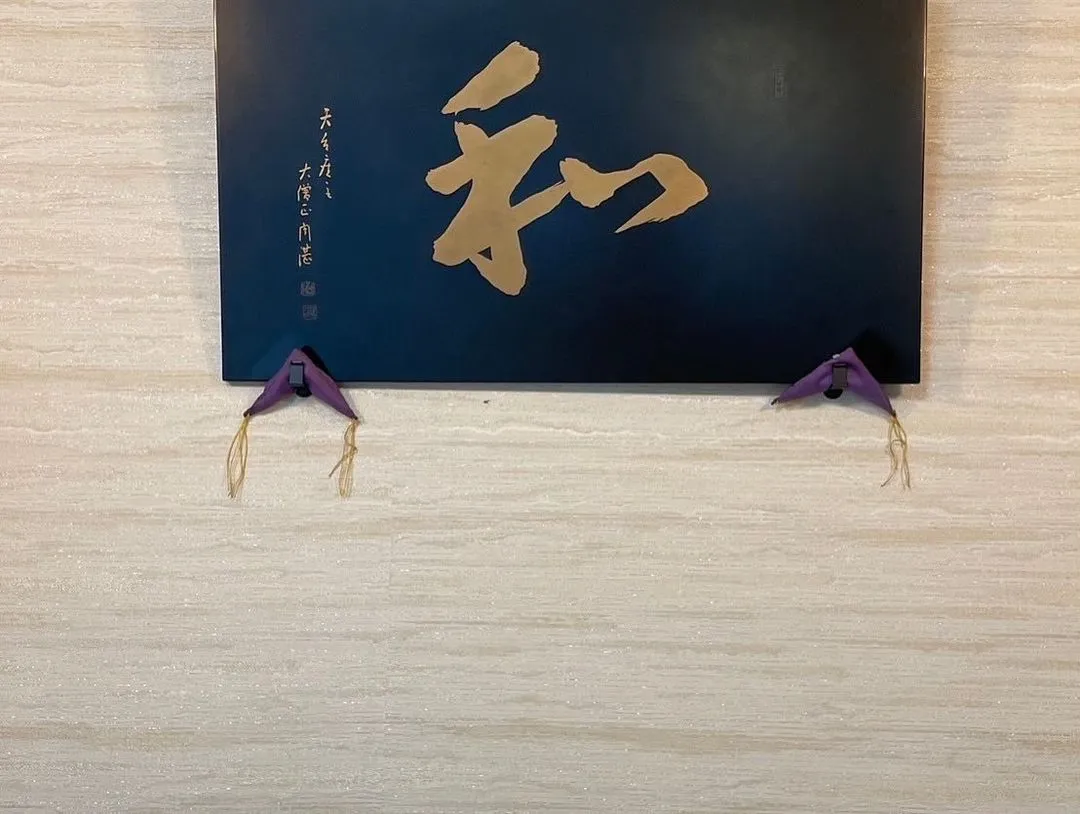 和
天台座主
大僧正周湛